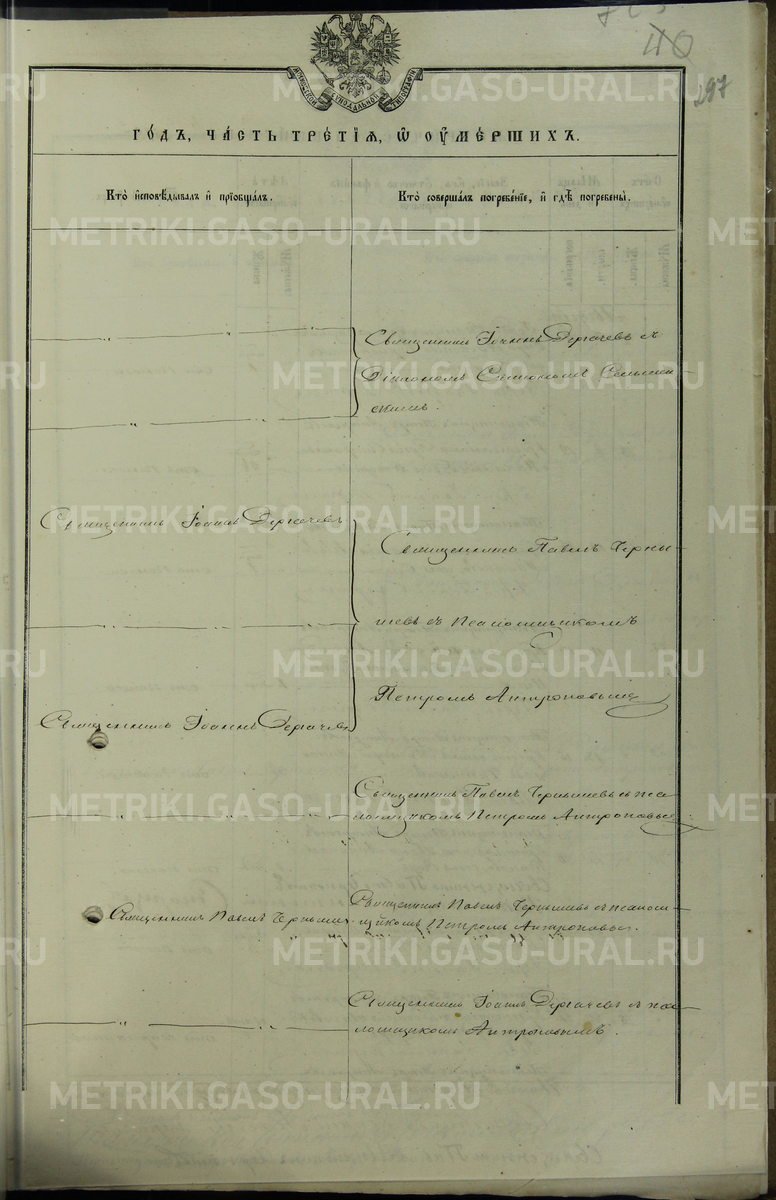 110
297
МОСКОВСКОЙ СУНОДАЛЬНОЙ ТИПОГРАФІИ
ГО́ДЪ, ЧА́СТЬ ТРЕ́ТІЯ, Ѿ ОУ҆МЕ́РШИХЪ.
Кто̀ и҆сповѣ́дывалъ и҆ прїобща́лъ.
Кто̀ соверша́лъ погребе́нїе, и҆ гдѣ̀ погребены̀.
Священникъ Іоаннъ Дергачевъ съ
Діакономъ Симеономъ
скимъ.
Священникъ Іоаннъ Дергачевъ
Священникъ Павелъ Черны-
шевъ съ Псаломщикомъ
Петромъ Антроповымъ
Священникъ Іоаннъ Дергачевъ
Священникъ Павелъ Чернышевъ съ пса-
ломщикомъ Петромъ Антроповы
Священникъ Павелъ Чернышев
Священникъ Павелъ Чернышевъ съ псалом-
щикомъ Петромъ Антроповы
Священникъ Іоаннъ Дергачевъ съ пса-
ломщикомъ Антроповымъ.
METRIKI.GASO-URAL.RU